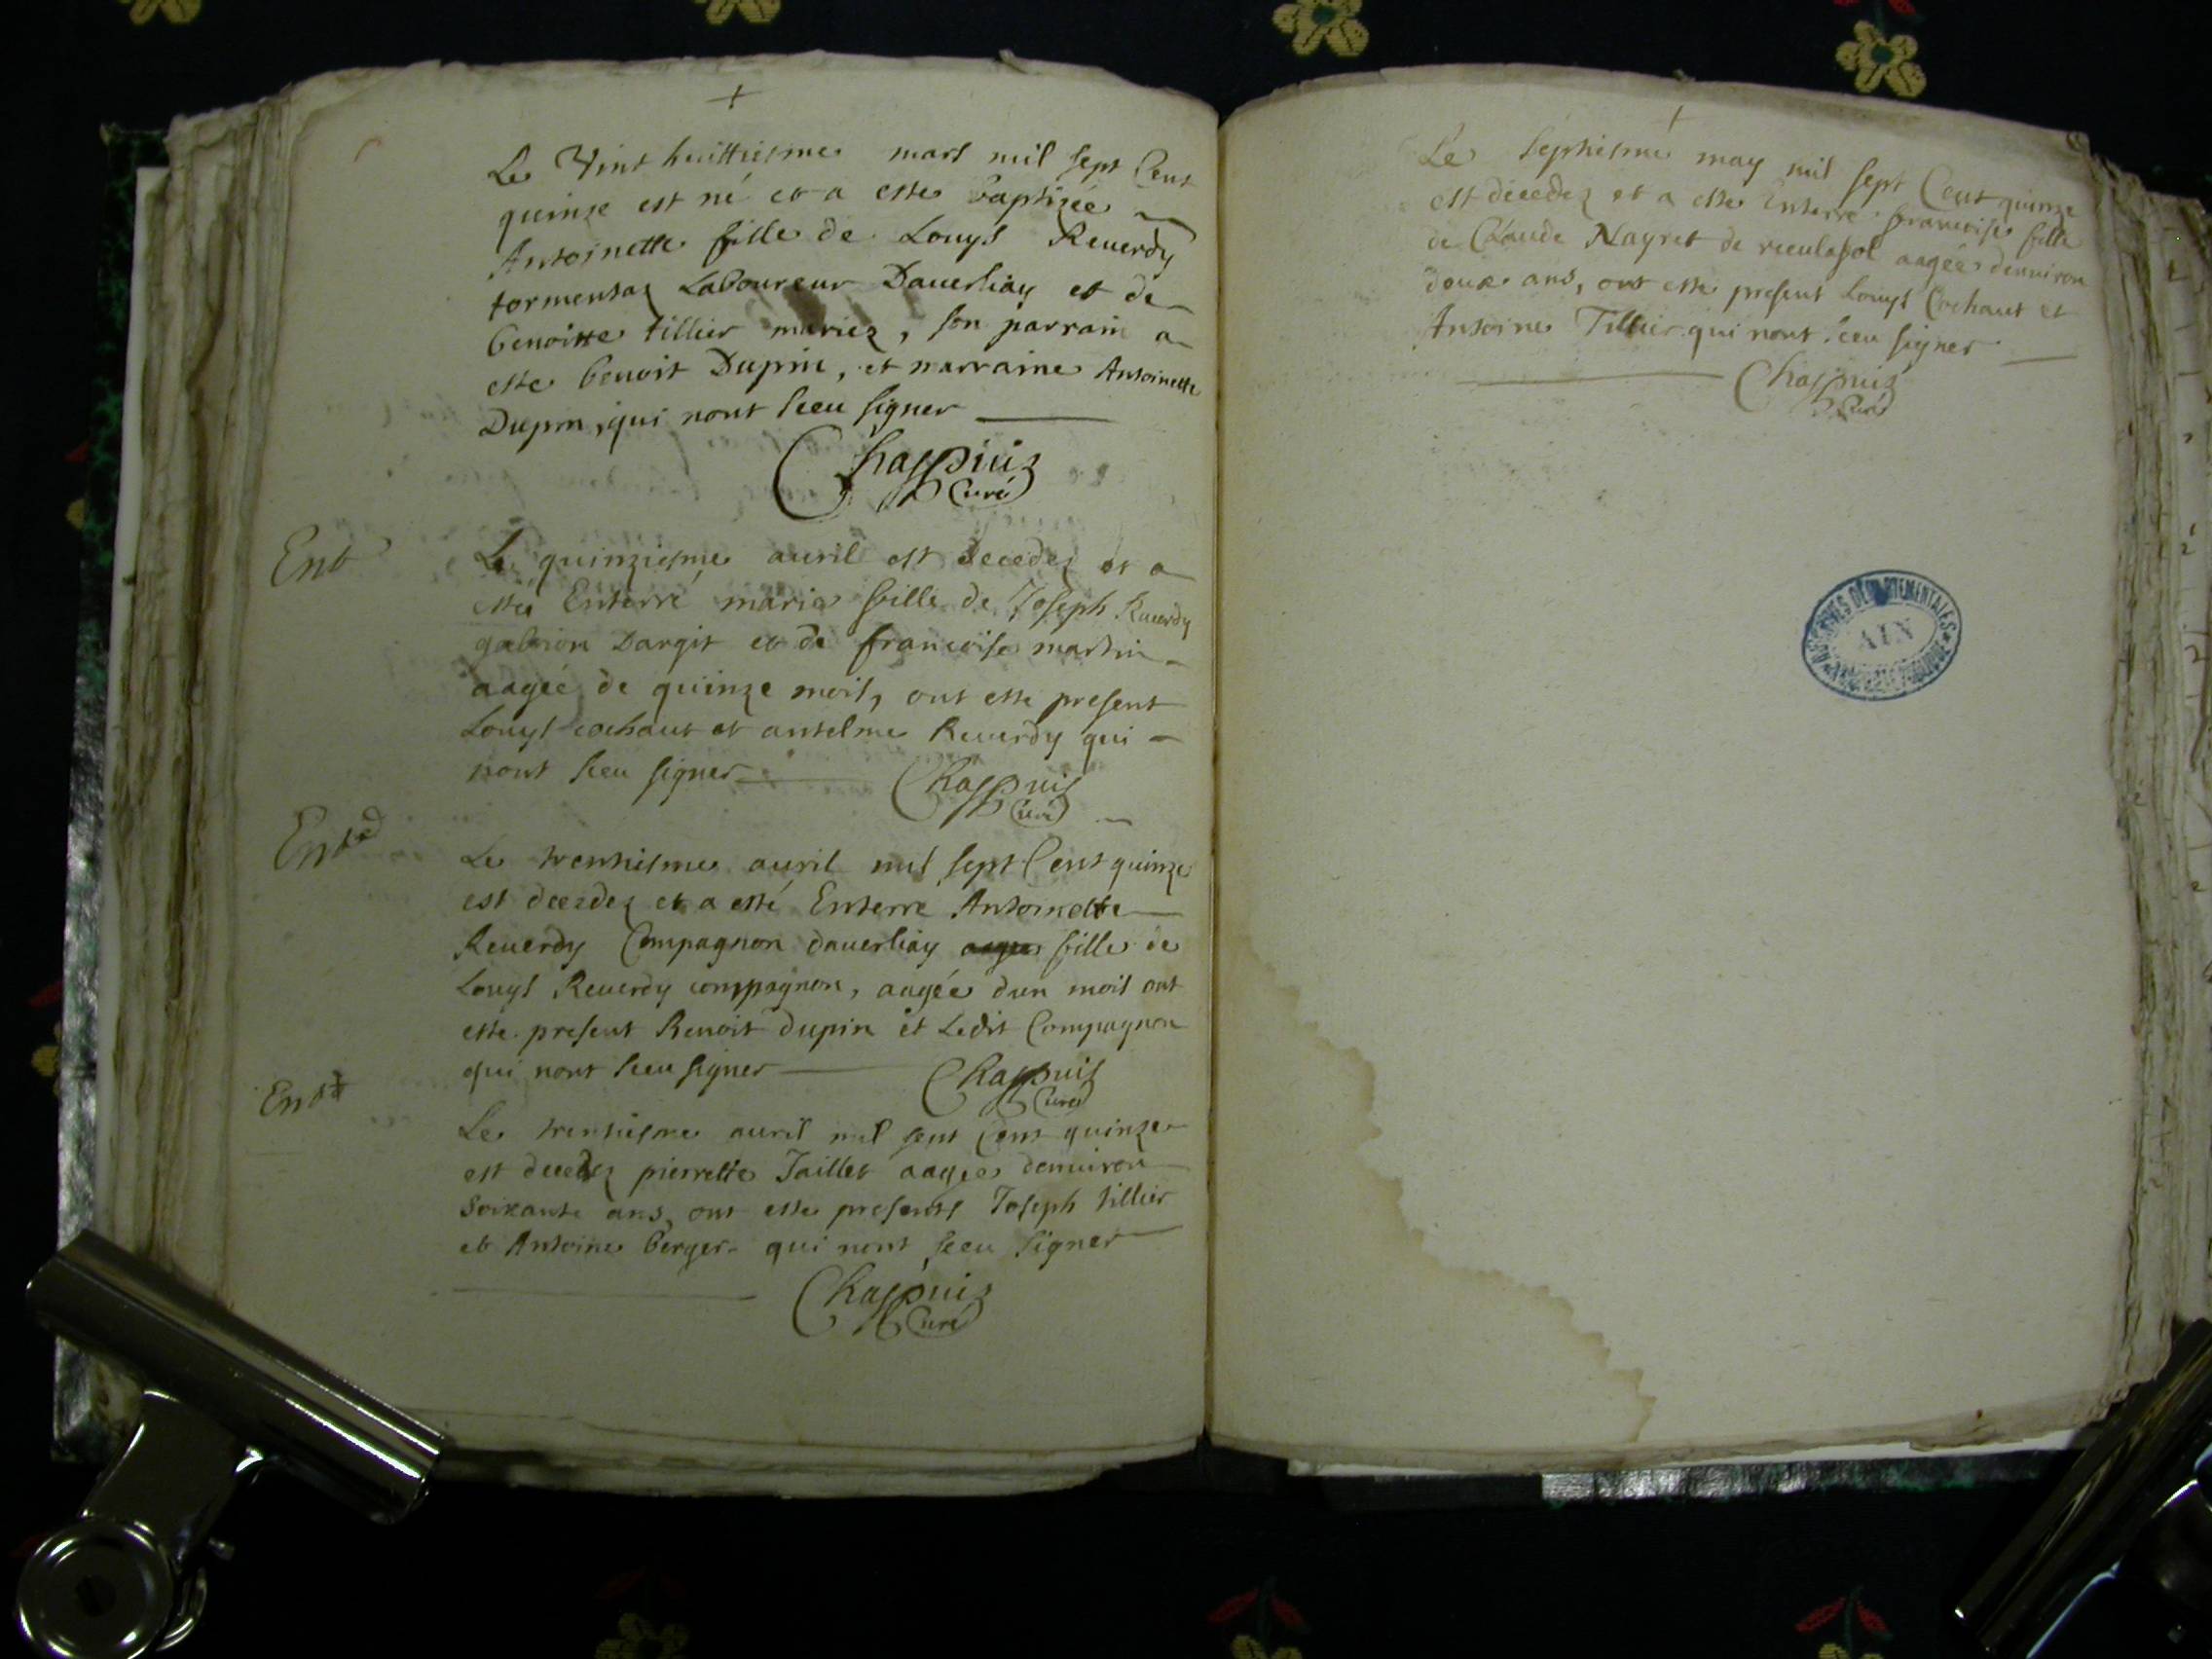 +
Le Vint huittiesme mars mil sept Cent
quinze est né et a este baptizée
Antoinette fille de Louys Reuerdy
tormensaz Laboureur Dauerliay et de
benoitte tillier mariez, son parrain a
este benoit Dupin, et marraine Antoinette
Dupin, qui nont sceu signer
Chappuiz
Curé
Ent
Le quinziesme auril est decedez et a
esté Enterré marie fille de Joseph Reuerdy
Dargit et de francoise martin
aagée de quinze mois, ont este present
Louys cochaut et antelme Reuerdy qui
nont sceu signer
Chappuis
Curé
Ent
Le trentiesme auril mil sept Cent quinze
est decedez et a esté Enterré Antoinette
Reuerdy Compagnon dauerliay fille de
Louys Reuerdy compagnon, aagée dun mois ont
este present Benoit dupin et Ledit Compagnon
qui nont sceu signer
Chappuis
Curé
Ent
Le trentiesme auril mil sept Cent quinze
est decedez pierrette Taillet aagee denuiron
soixante ans, ont este presents Joseph tillier
et Antoine berger qui nont sceu signer
Chappuiz
Curé
+
Le septiesme may mil sept Cent quinze
est decedez et a este Enterré francoise fille
de Claude Nayret de aagée denuiron
deux ans, ont este present Louys Cochaut et
Antoine Tillier qui nont sceu signer
Chappuiz
Curé
ARCHIVES DÉPARTEMENTALES
AIN